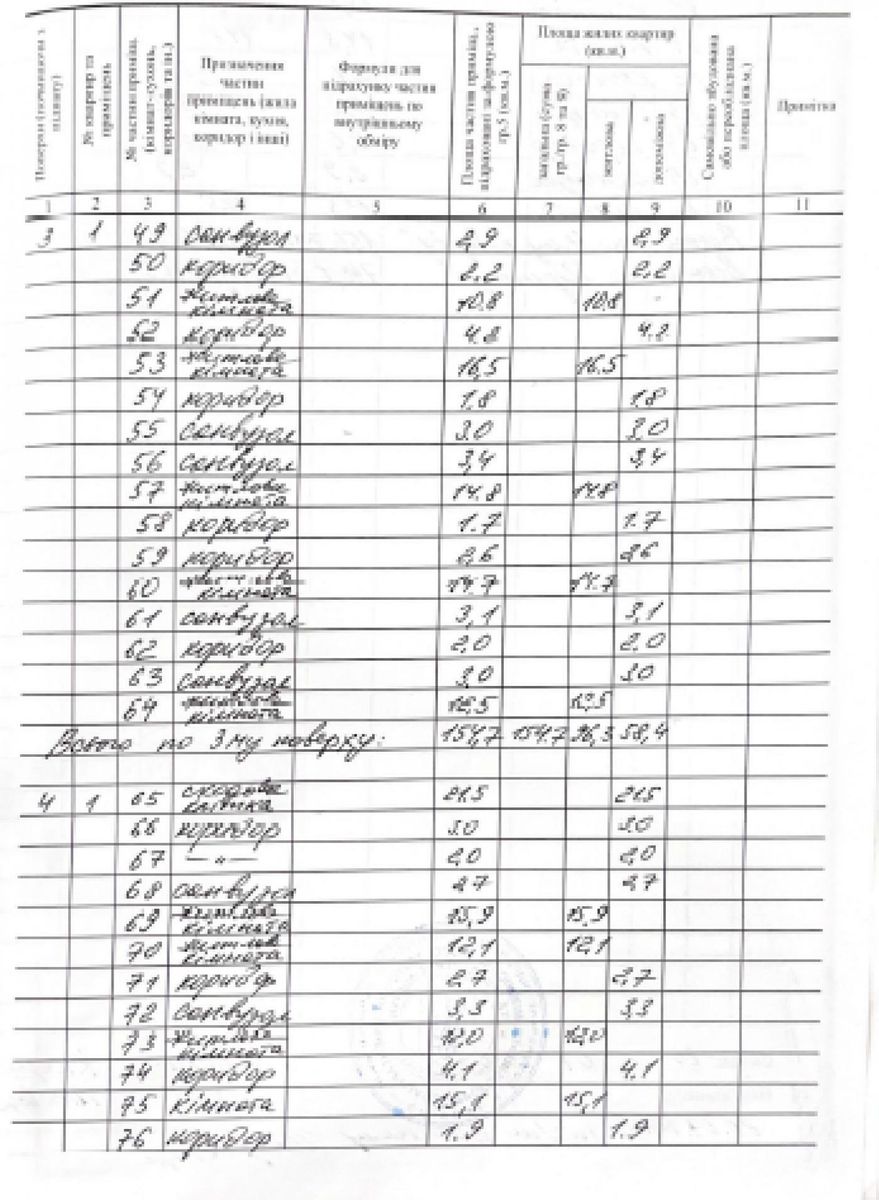 Поверхи (починаючи з підвалу)
№ квартир та приміщень
№ частин приміщ. (кімнат-кухонь, коридорів та ін.)
Призначення частин приміщень (жила кімната, кухня, коридор і інші)
Формули для підрахунку частин приміщень по внутрішньому обміру
Площа частин приміщ., підрахованих за формулою гр.5 (кв.м.)
Площа жилих квартир (кв.м.)
загальна (сума гр./гр. 8 та 9)
житлова
допоміжна
Самовільно збудована або переобладнана площа (кв.м.)
Примітка
1 2 3 4 5 6 7 8 9 10 11
3 1 49 санвузол 2,9 2,9
50 коридор 2.2 2,2
51 житлова кімната 10.8 10.8 -
52 коридор 4.2 4.2
53 житлова кімната 16,5 16.5
54 коридор 1.8 1.8
55 санвузол 3,0 3,0
56 санвузол 3,4 3,4
57 житлова кімната 14.8 14.8
58 коридор 1.7 1.7
59 коридор 2,6 2,6
60 житлова кімната 14.7 14.7
61 санвузол 3,1 3,1
62 коридор 2,0 2,0
63 санвузол 3,0 3.0
64 житлова кімната
Всього по 3му поверху: 154,7 154.7 96,3 58,4
4 1 65 сходова клітка 21.5 21.5
66 коридор 3.0 3.0
67 — " — 2,0 2,0
68 санвузол 2.7 2,7
69 житлова кімната 15,9 15,9
70 житлова кімната 12,1 12,1
71 коридор 2,7 2,7
72 санвузол 3,3 3,3
73 житлова кімната
74 коридор 4.1 4.1
75 кімната 15,1 15,1
76 коридор 1.9 1.9